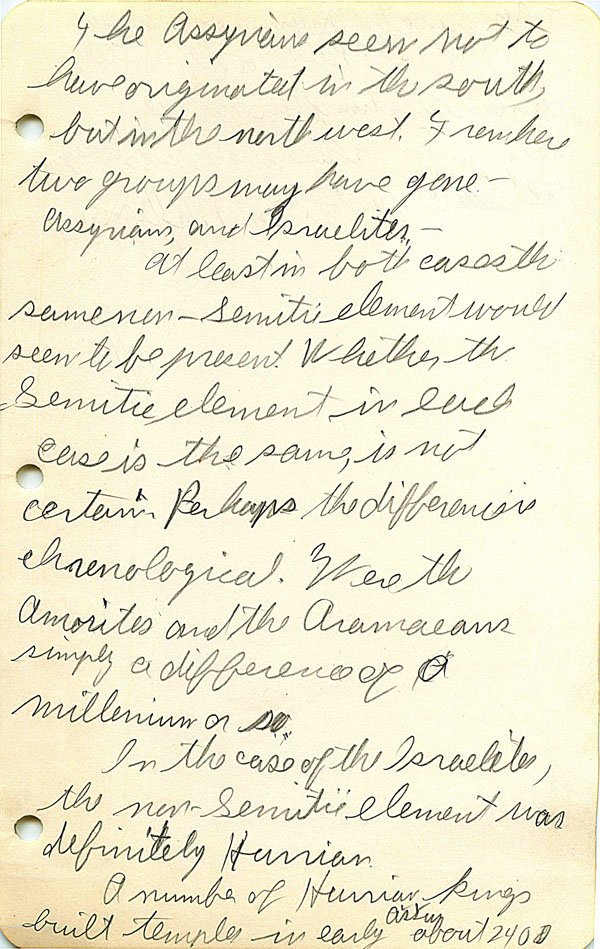 The Assyrians seem not to
have originated in the south,
but in the northwest. From here
two groups may have gone –
Assyrians, and Israelites –
At least in both cases the
same non-Semitic element would
seem to be present. Whether the
Semitic element in each
case is the same, is not
certain. Perhaps the difference is
chronological. Were the
Amorites and the Aramaeans
simply a difference of a
millenium or so.
In the case of the Israelites,
the non-Semitic element was
definitely Hurrian.
A number of Hurrian kings
built temples in early Assur about 2400